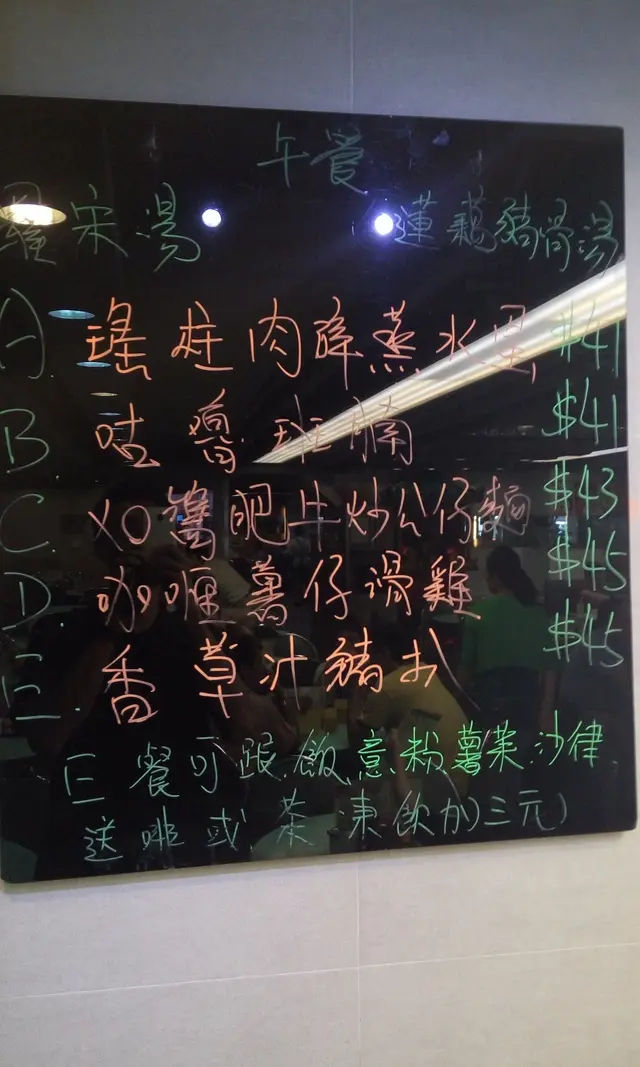 午餐
羅宋湯 蓮藕豬骨湯
A. 瑤柱肉碎蒸水蛋 $41
B. 咭㗎班腩 $41
C. XO醬肥牛炒公仔麵 $43
D. 咖喱薯仔滑雞 $45
E. 香草汁豬扒 $45
E 餐可跟飯、意粉、薯菜、沙律
送啡或茶(凍飲加三元)